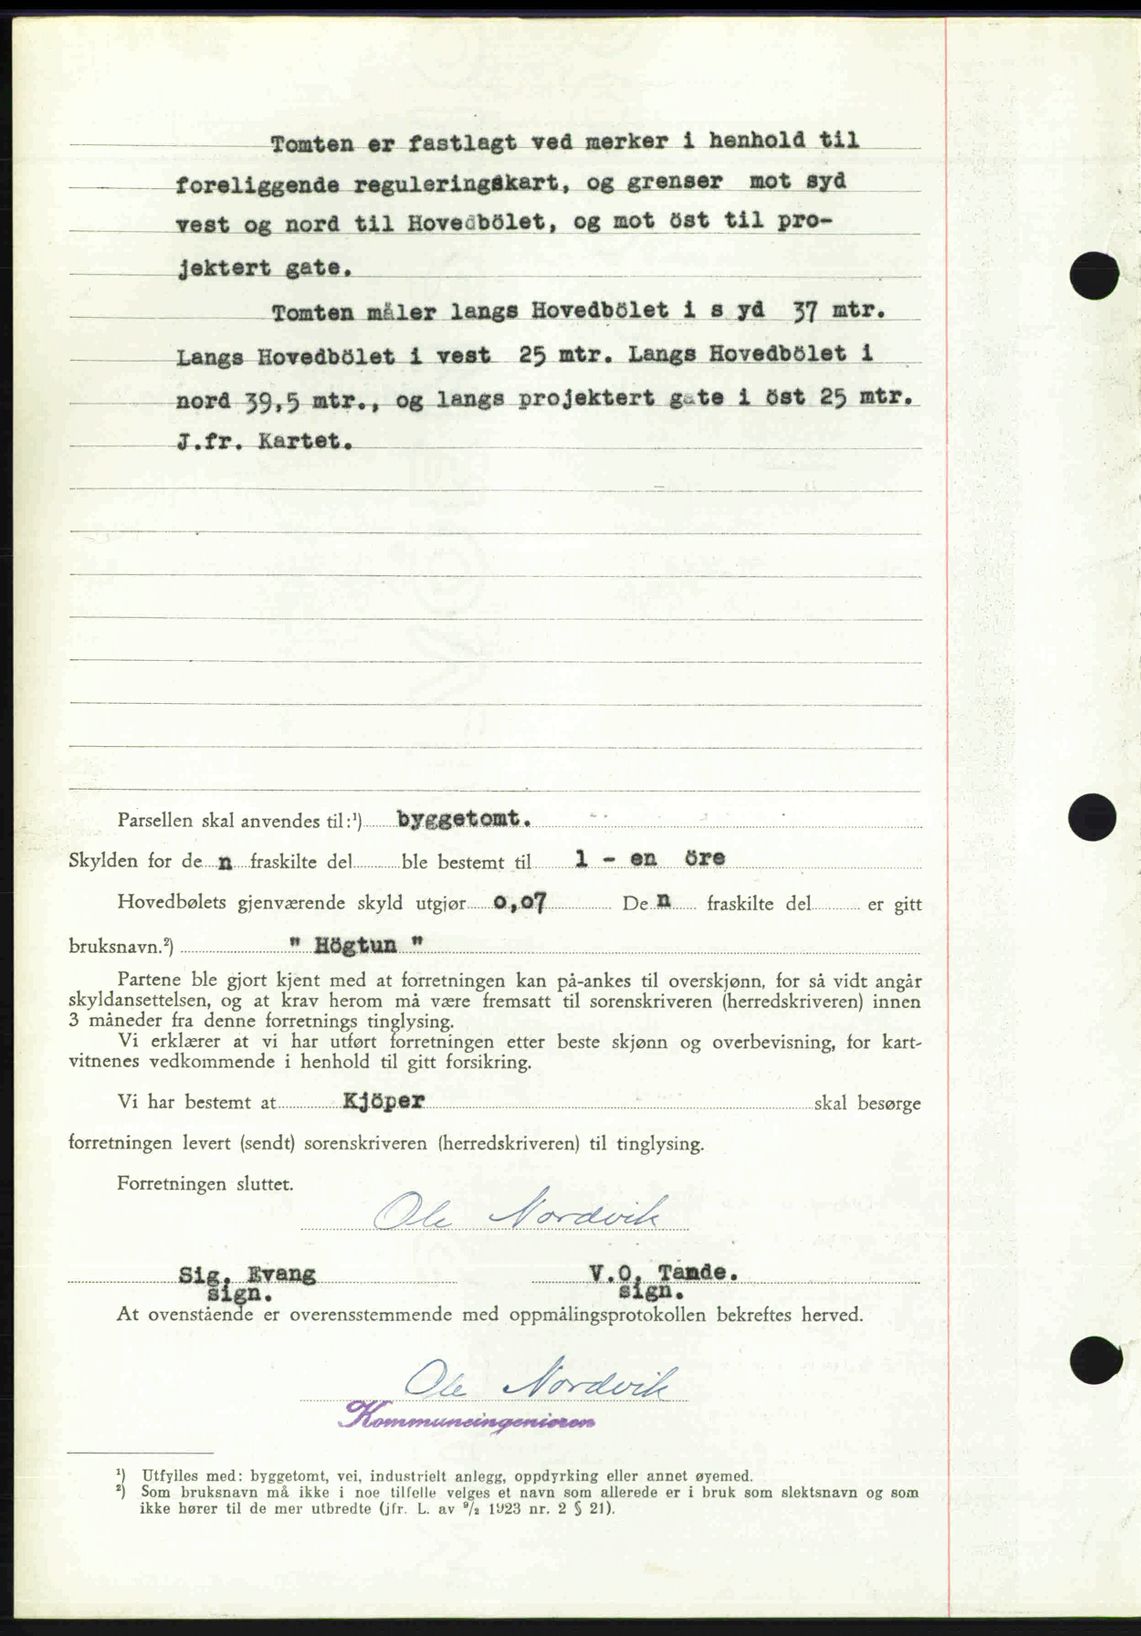 Tomten er fastlagt ved merker i henhold til
foreliggende reguleringskart, og grenser mot syd
vest og nord til Hovedbölet, og mot öst til pro-
jektert gate.
Tomten måler langs Hovedbölet i s yd 37 mtr.
Langs Hovedbölet i vest 25 mtr. Langs Hovedbölet i
nord 39,5 mtr., og langs projektert gate i öst 25 mtr.
J.fr. Kartet.
Parsellen skal anvendes til:¹) byggetomt.
Skylden for de n fraskilte del ble bestemt til 1 - en öre
Hovedbølets gjenværende skyld utgjør 0,07 De n fraskilte del er gitt
bruksnavn.²) " Högtun "
Partene ble gjort kjent med at forretningen kan på-ankes til overskjønn, for så vidt angår
skyldansettelsen, og at krav herom må være fremsatt til sorenskriveren (herredskriveren) innen
3 måneder fra denne forretnings tinglysing.
Vi erklærer at vi har utført forretningen etter beste skjønn og overbevisning, for kart-
vitnenes vedkommende i henhold til gitt forsikring.
Vi har bestemt at Kjöper skal besørge
forretningen levert (sendt) sorenskriveren (herredskriveren) til tinglysing.
Forretningen sluttet.
Ole Nordvik
Sig. Evang V.O. Tande.
sign. sign.
At ovenstående er overensstemmende med oppmålingsprotokollen bekreftes herved.
Ole Nordvik
Kommuneingeniøren
¹) Utfylles med: byggetomt, vei, industrielt anlegg, oppdyrking eller annet øyemed.
²) Som bruksnavn må ikke i noe tilfelle velges et navn som allerede er i bruk som slektsnavn og som
ikke hører til de mer utbredte (jfr. L. av ⁹/₂ 1923 nr. 2 § 21).